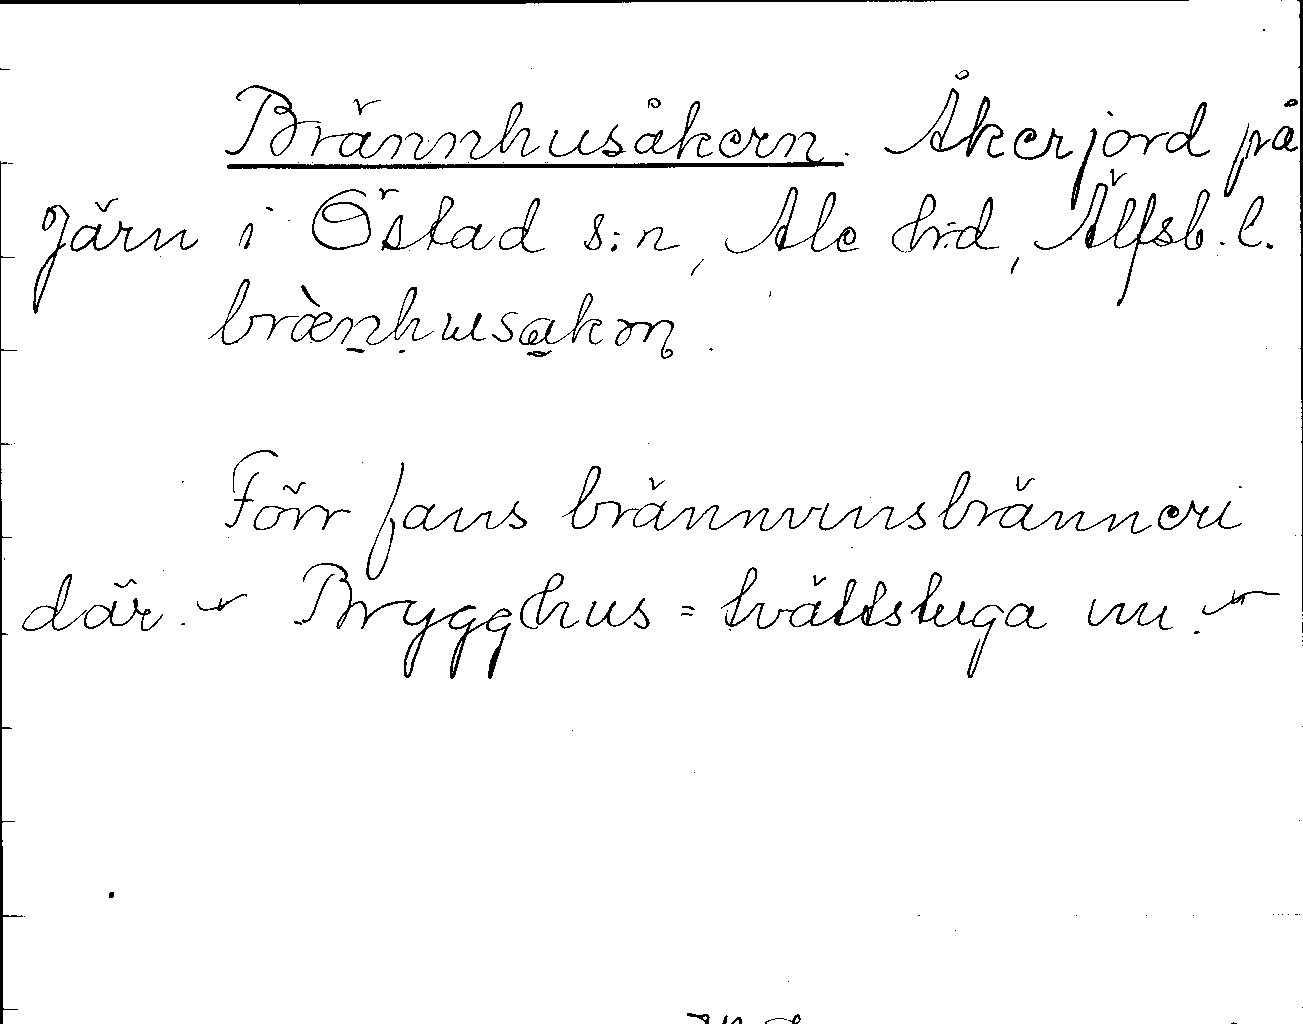 Brännhusåkern. Åkerjord på
Järn i Östad s:n, Ale h:d, Älfsb. l.
brænhusakɷn.
Förr fans brännvinsbränneri
där. Brygghus = tvättstuga nu.